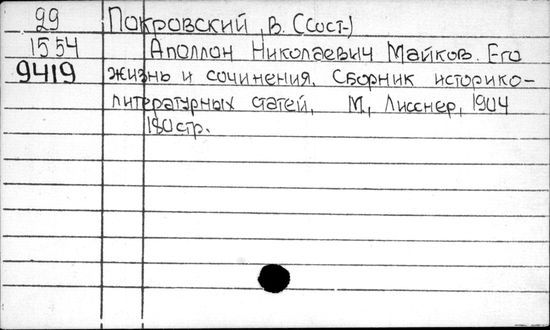 29 Покровский, В. (сост.)
1554 Аполлон Николаевич Майков. Его
9419 жизнь и сочинения. Сборник историко-
литературных статей, М., Лисснер, 1904
180стр.